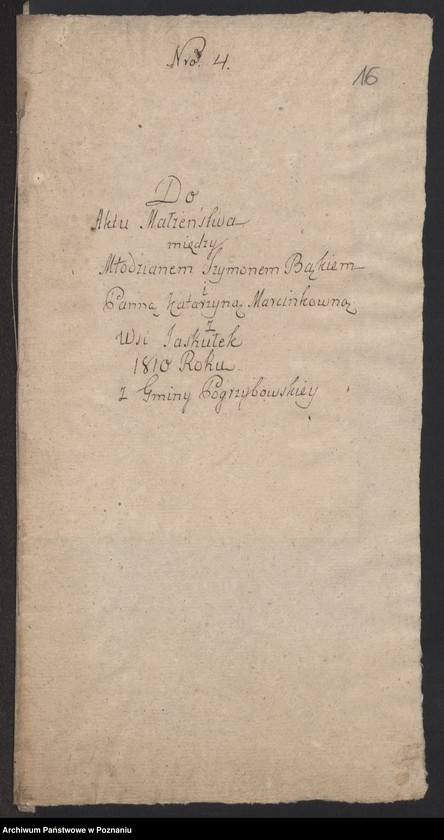 Nro. 4.
16
Do
Aktu Małżeństwa
między
Młodzianem Szymonem Bąkiem
i
Panną Katarzyną Marcinkowną
z
Wsi Jaskułek
1810 Roku
z Gminy Pogrzybowskiey
Archiwum Państwowe w Poznaniu